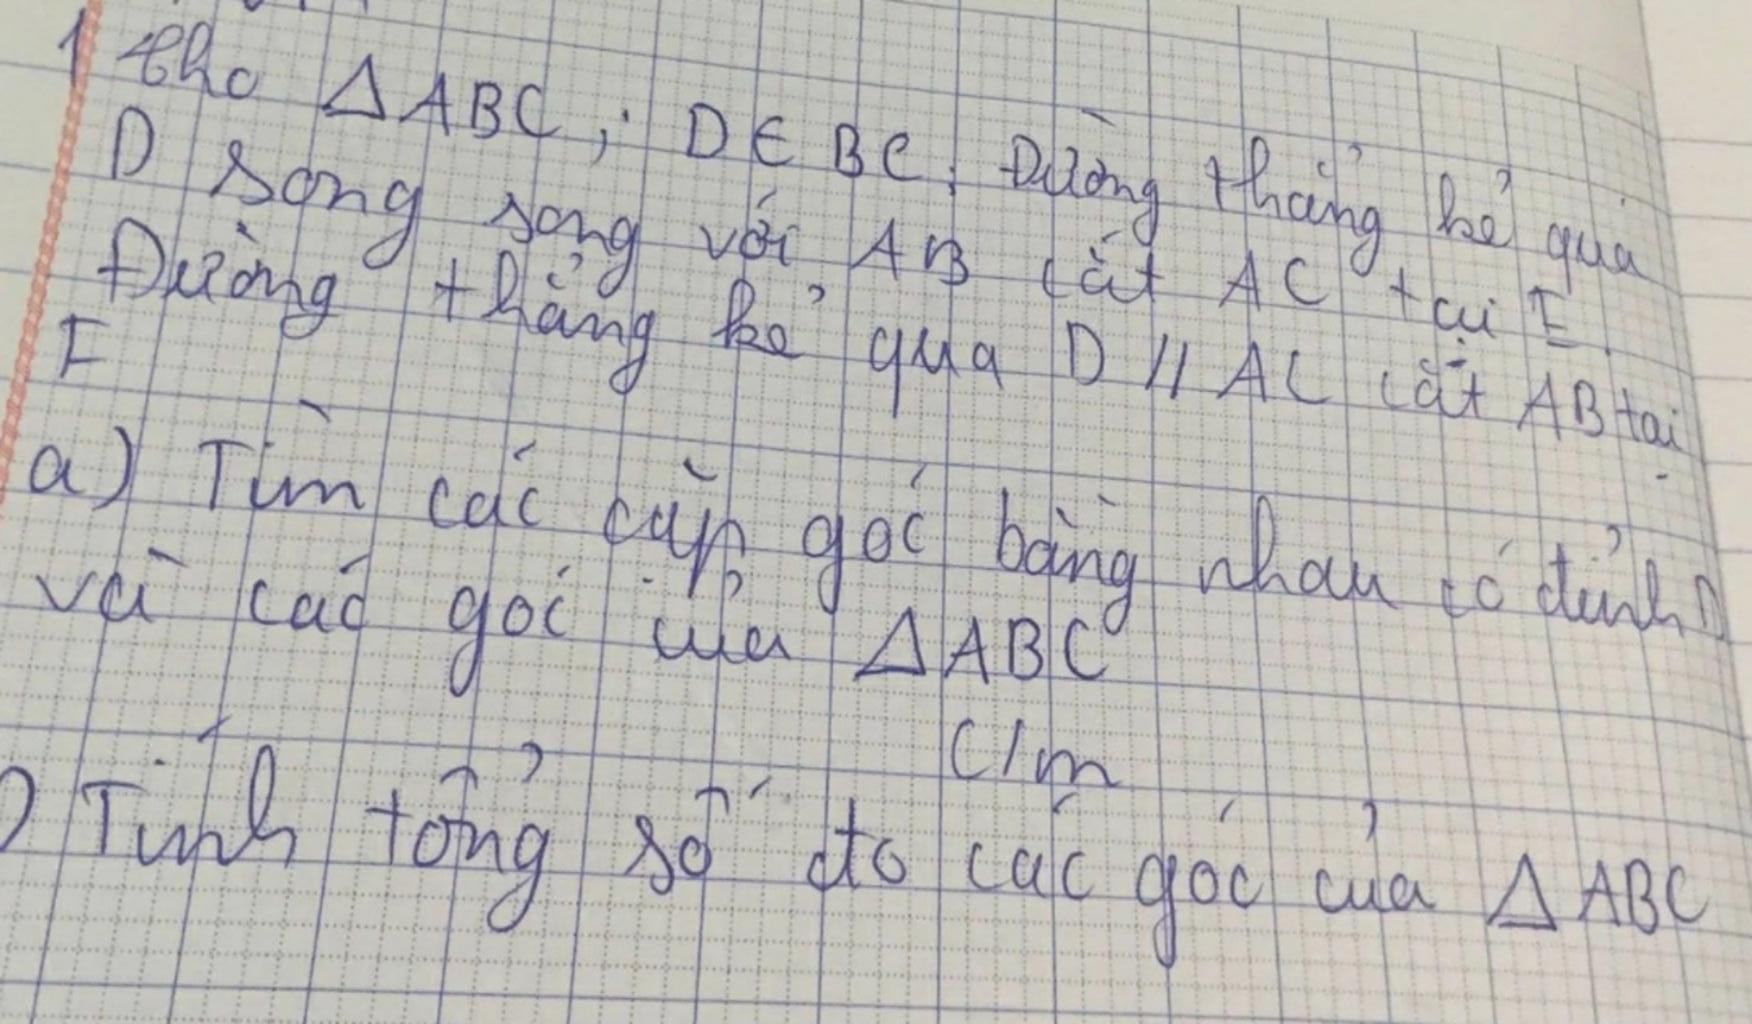 1 Cho △ABC, D ∈ BC. Đường thẳng kẻ qua
D song song với AB cắt AC tại E.
Đường thẳng kẻ qua D // AC cắt AB tại
F
a) Tìm các cặp góc bằng nhau có đỉnh D
và các góc của △ABC
C/m
) Tính tổng số đo các góc của △ABC